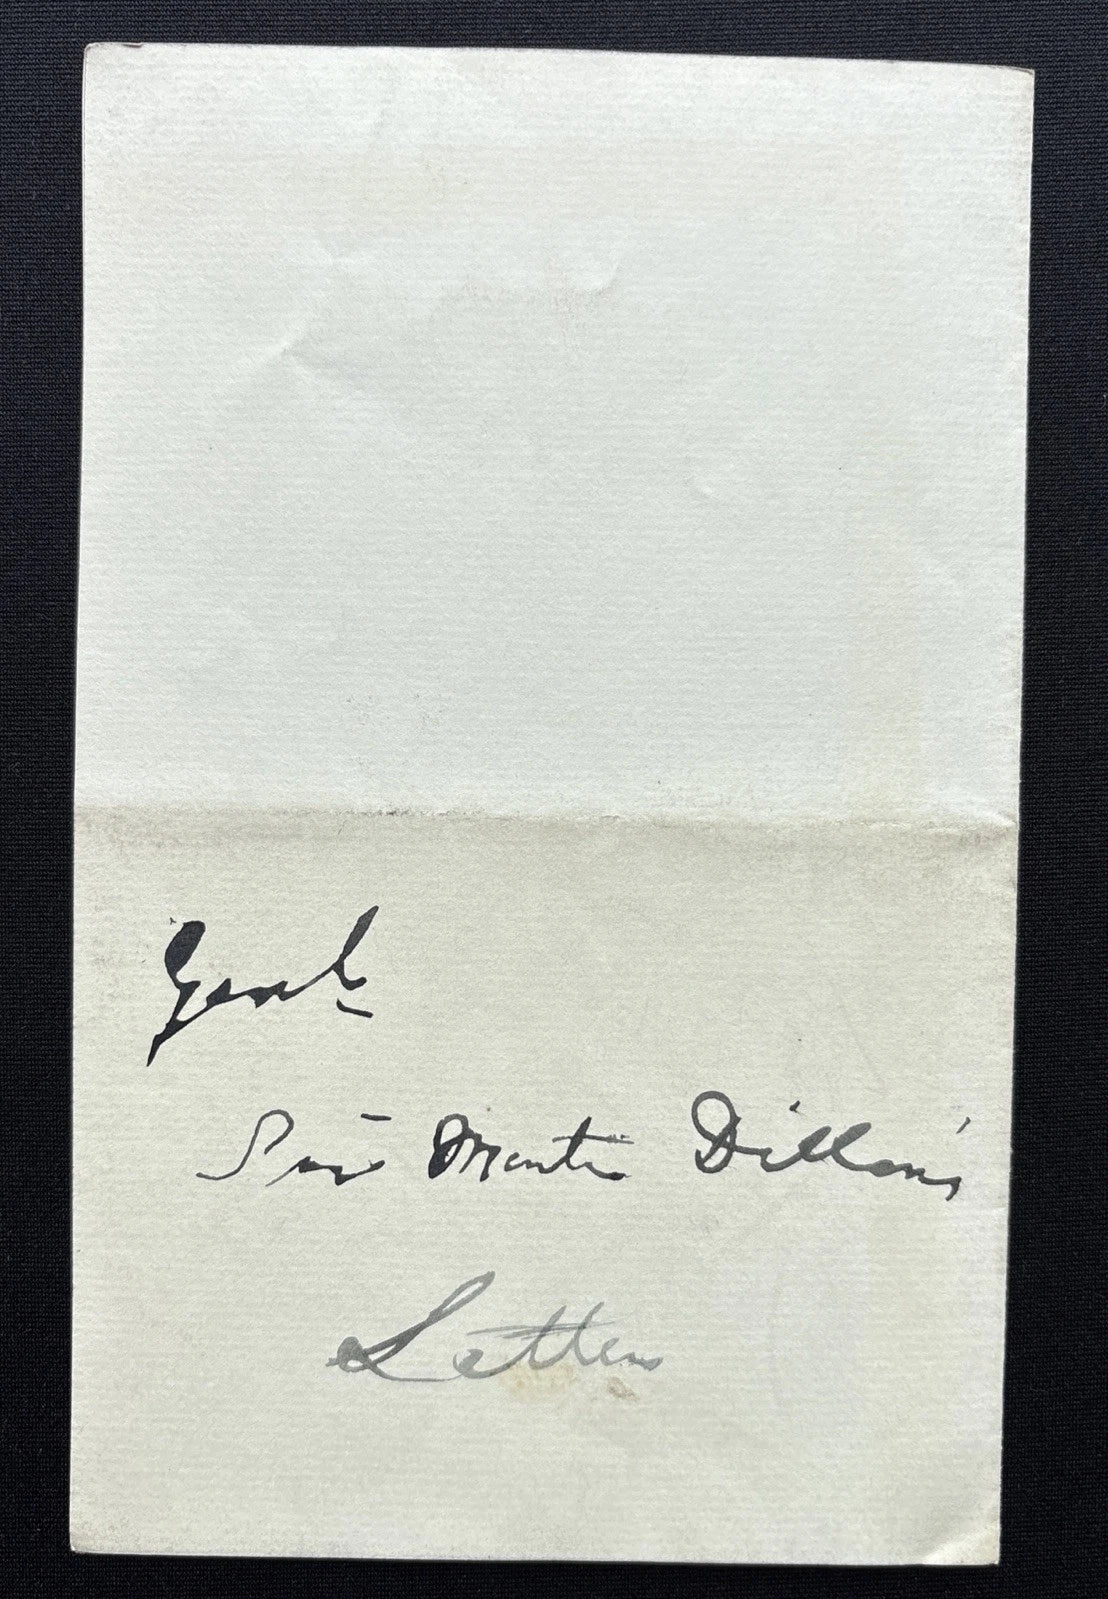 Genl
Sir Martin Dillon's
Letters